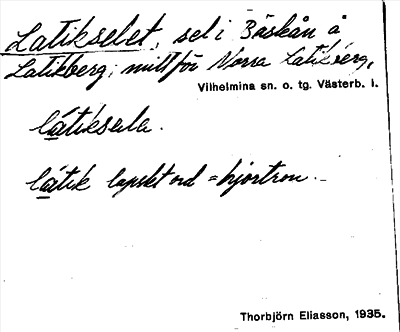 Latikselet, sel i Båskån å
Latikberg; mitt för Norra Latikberg,
Vilhelmina sn. o. tg. Västerb. l.
látiksela.
látik lapskt ord = hjortron.
Thorbjörn Eliasson, 1935.